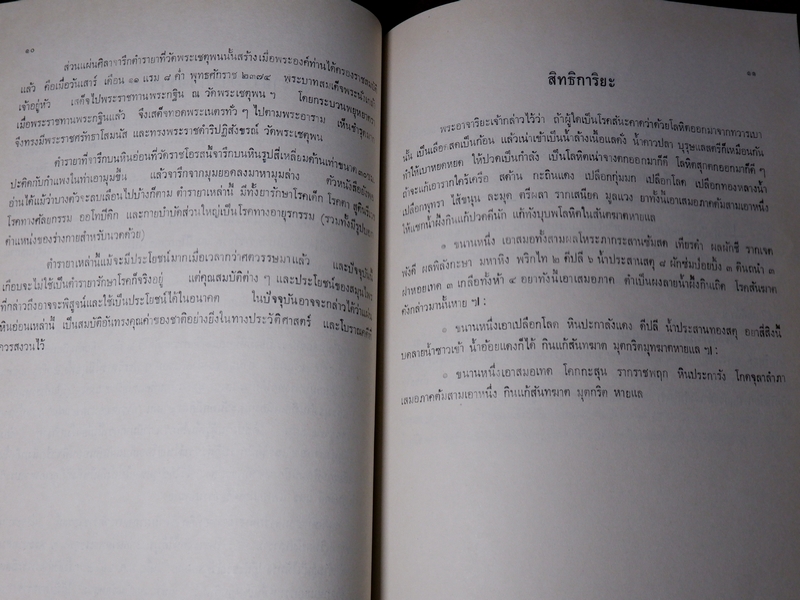 ๑๐
ส่วนแผ่นศิลาจารึกตำรายาที่วัดพระเชตุพนนั้นสร้างเมื่อพระองค์ท่านได้ครองราชสมบัติ
แล้ว คือเมื่อวันเสาร์ เดือน ๑๑ แรม ๘ ค่ำ พุทธศักราช ๒๓๗๔ พระบาทสมเด็จพระนั่งเกล้า
เจ้าอยู่หัว เสด็จไปพระราชทานพระกฐิน ณ วัดพระเชตุพน ฯ โดยกระบวนพยุหยาตรา
เมื่อพระราชทานพระกฐินแล้ว จึงเสด็จทอดพระเนตรทั่ว ๆ ไปตามพระอาราม เห็นชำรุด
จึงทรงมีพระราชศรัทธาโสมนัส และทรงพระราชดำริปฏิสังขรณ์ วัดพระเชตุพน
ตำรายาที่จารึกบนหินอ่อนที่วัดราชโอรสนี้จารึกบนหินรูปสี่เหลี่ยมด้านเท่าขนาด
ปะติดกับกำแพงในท่าเอามุมขึ้น แล้วจารึกจากมุมยอดลงมาหามุมล่าง ตัวหนังสือยังพอ
อ่านได้แม้ว่าบางตัวจะลบเลือนไปบ้างก็ตาม ตำรายาเหล่านี้ มีทั้งยารักษาโรคเด็ก โรคตา
โรคทางศัลยกรรม ออโทปิดิก และกายบำบัดส่วนใหญ่เป็นโรคทางอายุรกรรม (รวมทั้งมีรูปบอก
ตำแหน่งของร่างกายสำหรับนวดด้วย)
ตำรายาเหล่านี้แม้จะมีประโยชน์มากเมื่อเวลากว่าศตวรรษมาแล้ว และปัจจุบันนี้
เกือบจะไม่ใช้เป็นตำรายารักษาโรคก็จริงอยู่ แต่คุณสมบัติต่าง ๆ และประโยชน์ของสมุนไพร
ที่กล่าวถึงอาจจะพิสูจน์และใช้เป็นประโยชน์ได้ในอนาคต ในปัจจุบันอาจจะกล่าวได้ว่าแผ่น
หินอ่อนเหล่านี้ เป็นสมบัติอันทรงคุณค่าของชาติอย่างยิ่งในทางประวัติศาสตร์ และโบราณคดีที่
ควรสงวนไว้
๑๑
สิทธิการิยะ
พระอาจาริยะเจ้ากล่าวไว้ว่า ถ้าผู้ใดเป็นโรคสันะคาดว่าด้วยโลหิตออกมาจากทวารเบา
นั้น เป็นเลือดสดเป็นก้อน แล้วเน่าเข้าเป็นน้ำล้างเนื้อแดั่ง น้ำดาวปสา บุรุษแลสตรีก็เหมือนกัน
ทำให้เบาหยดหยด ให้ปวดเป็นกำลัง เป็นโลหิตเน่าจางตกออกมาก็ดี โลหิตสุกตกออกมาก็ดี ๆ
ถ้าจะแก้เอารากไคร้เครือ สค้าน กะถินแดง เปลือกกุ่มบก เปลือกโลด เปลือกทองหลางน้ำ
เปลือกพุทรา ไส้ขนุน ละมุด ตรีผลา รากเสนียด มูลแวง ยาทั้งนี้เอาเสมอภาคต้มสามเอาหนึ่ง
ให้แซกน้ำผึ้งกินแก้ปวดคีนัก แก้ทั้งบุบพโลหิตในสันตฆาตหายแล
๑ ขนานหนึ่ง เอาสมอทั้งสามผลโหระภากระสานข้มสด เทียรดำ ผลผักชี รากเจต
พังคี ผลพิลังกะษา มหาหิง พริกไท ๒ ดีปลี ๖ น้ำประสานสตุ ๘ ผักข่มปอยบั้ง ๓ ดินถนำ ๓
ฝาหอยเทศ ๓ เกลือทั้งห้า ๔ อยาทั้งนี้เอาเสมอภาค ตำเป็นผงลายน้ำผึ้งกินแก้ถ โรคสันฆาต
ดังกล่าวมานั้นหาย ฯ|:
๑ ขนานหนึ่งเอาเปลือกโลด หินปะกาลังแดง ดีปลี น้ำประสานทองสตุ อยาสี่สิ่งนี้
บดลายน้ำซาวเข้า น้ำอ้อยแดงก็ได้ กินแก้สันทฆาต มุตกริตมุทฆาตหายแล ฯ|:
๑ ขนานหนึ่งเอาสมอเทศ โคกกะสุน รากราชพฤก หินประการัง โกดจุลาลำภา
เสมอภาคต้มสามเอาหนึ่ง กินแก้สันทฆาต มุตกริด หายแล